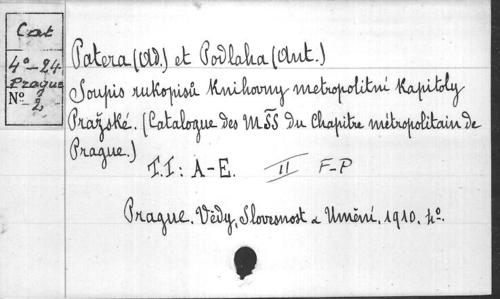 Cat
4°-24
Prague
N° 2
Patera (Ad.) et Podlaha (Ant.)
Soupis rukopisů knihovny metropolitní kapitoly
Pražské. (Catalogue des MSS du Chapitre métropolitain de
Prague.)
T.I: A-E. II F-P
Prague. Vědy, Slovesnost a Umění. 1910. 4°.